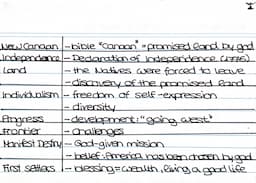 I
New Canaan - bible "Canaan" = promised land by god
Independence - Declaration of Independence (1776)
Land - the Natives were forced to leave
- discovery of the promised land
Individualism - freedom of self-expression
- diversity
Progress - development: "going west"
Frontier - challenges
Manifest Destiny - God-given mission
- belief: America has been chosen by god
First settlers - blessing = wealth, living a good life